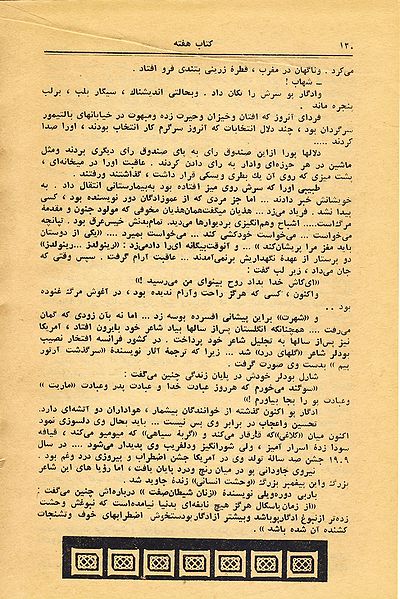 ۱۲۰ کتاب هفته
می‌کرد . وناگهان در مغرب ، قطرهٔ زرینی بتندی فرو افتاد .
ـ شهاب !
وادگار پو سرش را تکان داد . وبحالتی اندیشناک ، سیگار بلب ، برلب
پنجره ماند .
فردای آنروز که افتان وخیزان وحیرت زده ومبهوت در خیابانهای بالتیمور
سرگردان بود ، چند دلال انتخابات که آنروز سرگرم کار انتخاب بودند ، اورا صدا
کردند ....
دلالها پورا ازاین صندوق رأی به پای صندوق رأی دیگری بردند ومثل
ماشین در هر حوزه‌ای وادار به رأی دادن کردند . عاقبت اورا در میخانه‌ای ،
پشت میزی که روی آن یك بطری ویسکی قرار داشت ، گذاشتند ورفتند .
طبیبی اورا که سرش روی میز افتاده بود به‌بیمارستانی انتقال داد . به
خویشانش خبر دادند ... اما جز مردی که از عموزادگان دور نویسنده بود ، کسی
پیدا نشد . فریاد می‌زد ... هذیان میگفت‌همان‌هذیان مخوفی که مولود جنون و مقدمهٔ
مرگ‌است.... اشباح وهم‌انگیزی بردیوارها می‌دید. تمام‌بدنش خیس‌عرق بود . نیانچه
می‌خواست ... می‌خواست خودکشی کند ... می‌خواست بمیرد .... «یکی از دوستان
باید مغز مرا پریشان‌کند » ... و آنوقت‌بیگانه ای‌را دادمی‌زد : «رینولدز ...رینولدز!»
دو پرستار از عهدهٔ نگهداریش برنمی‌آمدند ... عاقبت آرام گرفت . سپس وقتی که
جان می‌داد ، زیر لب گفت :
«ای‌کاش خدا بداد روح بینوای من می‌رسید !»
واکنون ، کسی که هرگز راحت وآرام ندیده بود ، در آغوش مرگ غنوده
بود ..
و «شهرت» براین پیشانی افسرده بوسه زد ... اما نه بان زودی که گمان
می‌رفت .... همچنانکه انگلستان پس‌از سالها بیاد شاعر خود بایرون افتاد ، آمریکا
نیز پس‌از سالها به تجلیل شاعر خود پرداخت . در کشور فرانسه افتخار نصیب
بودلر شاعر «گلهای درد» شد ... زیرا که ترجمهٔ آثار نویسندهٔ «سرگذشت آرتور
پیم » بدست وی صورت گرفت .
شارل بودلر خودش در پایان زندگی چنین می‌گفت :
«سوگند می‌خورم که هرروز عبادت خدا و عبادت پدر وعبادت «ماریت »
وعبادت پو را بجا بیاورم !»
ادگار پو اکنون گذشته از خوانندگان بیشمار ، هواداران دو آتشه‌ای دارد.
تحسین واعجاب در برابر وی بس نیست ... باید بحال وی دلسوزی نمود
اکنون میان «کلاغی»که قارقار می‌کند و «گربهٔ سیاهی» که میومیو می‌کند ، قیافه
سودا زدهٔ اسرار آمیز ، ولی شورانگیز ودلفریب وی پدیدار می‌شود .... در سال
۱۹۰۹ جشن صد سالهٔ تولد وی در آمریکا جشن اضطراب و پیروزی درد وغم بود .
نیروی جاودانی پو در میان رنج ودرد پایان یافت ، اما رؤیا های این شاعر
بزرگ و این پیغمبر بزرگ «وحشت انسانی» زندهٔ جاوید شد .
باربی دورویلی نویسندهٔ «زنان شیطان‌صفت » درباره‌اش چنین می‌گفت :
«از زمان‌پاسکال هرگز هیچ نابغه‌ای بدنیا نیامده‌است که نبوغش وحشت
زده‌تر ازنبوغ ادگارپوباشد وبیشتر ازادگارپودستخوش اضطرابهای خوف وتشنجات
کشنده آن شده باشد » .